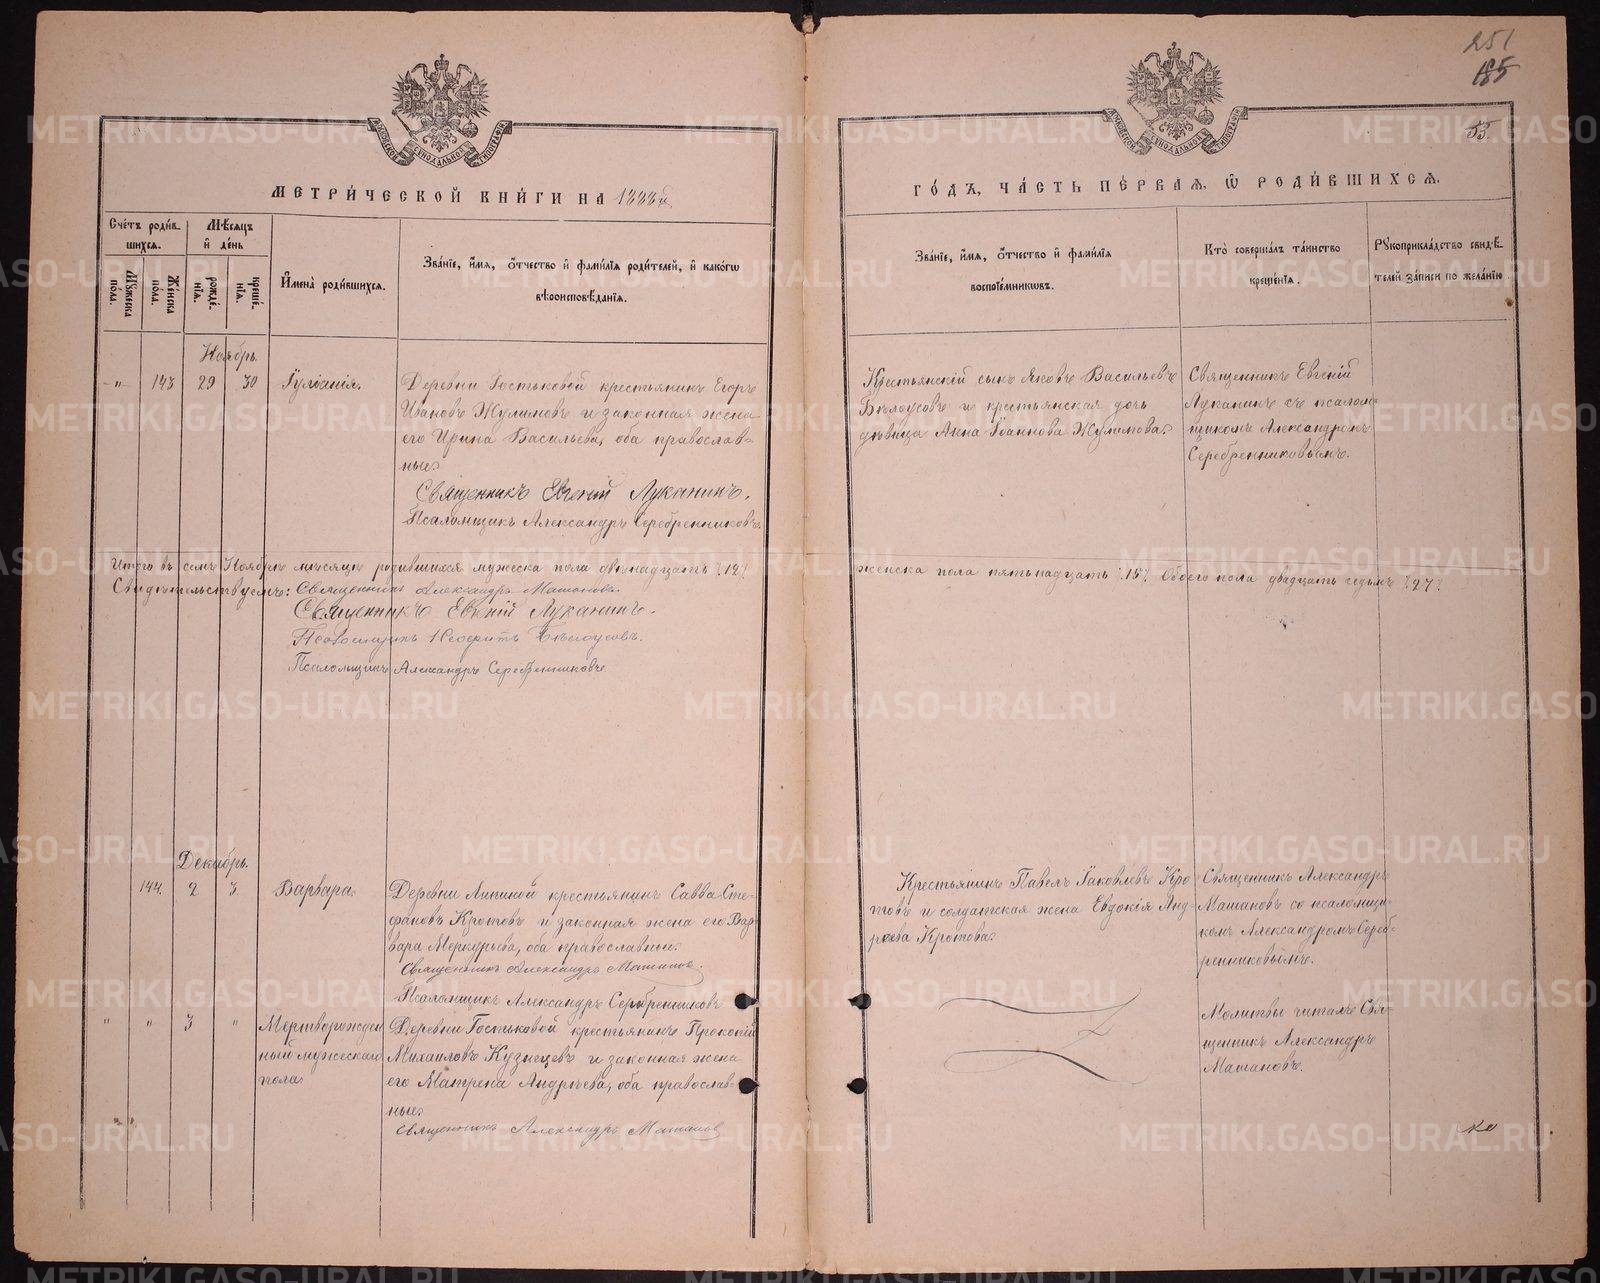 251
185
53.
МЕТРИ́ЧЕСКОЙ КНИ́ГИ НА 1888й
ГО́ДЪ, ЧА́СТЬ ПЕ́РВАЯ, Ѡ РОДИ́ВШИХСЯ.
Сче́тъ роди́в-
шихся.
Мꙋжеска
пола.
Же́нска
пола.
Мѣ́сяцъ
и҆ де́нь
рожде́-
нїя.
креще́-
нїя.
И҆мена̀ роди́вшихся.
Зва́нїе, и҆́мя, ѻ҆́тчество и҆ фами́лїя роди́телей, и҆ како́гѡ
вѣроисповѣ́данїя.
Зва́нїе, и҆́мя, ѻ҆́тчество и҆ фами́лїя
воспрїе́мникѡвъ.
Кто̀ соверша́лъ та́инство
креще́нїя.
Рꙋкоприкла́дство свидѣ́-
телей за́писи по жела́нїю.
Ноябрь.
" 143 29 30
Іуліанія.
Деревни Гостьковой крестьянинъ Егоръ
Ивановъ Жулимовъ и законная жена
его Ирина Васильева, оба православ-
ные.
Священникъ Евгеній Луканинъ.
Псаломщикъ Александръ Серебренниковъ.
Крестьянскій сынъ Яковъ Васильевъ
Бѣлоусовъ и крестьянская дочь
дѣвица Анна Іоаннова Жулимова.
Священникъ Евгеній
Луканинъ съ псалом-
щикомъ Александромъ
Серебренниковымъ.
Итого въ семъ Ноябрѣ мѣсяцѣ родившихся мужеска пола двѣнадцать /12/
женска пола пятьнадцать /15/ Обоего пола двадцать седьмъ /27/
Свидѣтельствуемъ: Священникъ Александръ Машановъ.
Священникъ Евгеній Луканинъ.
Псаломщикъ Бѣлоусовъ.
Псаломщикъ Александръ Серебренниковъ
Декабрь.
144. 2 3
Варвара.
Деревни Липиной крестьянинъ Савва Сте-
фановъ Кротовъ и законная жена его Вар-
вара Меркурьева, оба православные.
Священникъ Александръ Машановъ.
Псаломщикъ Александръ Серебренниковъ
Крестьянинъ Павелъ Іаковлевъ Кро-
товъ и солдатская жена Евдокія Анд-
реева Кротова.
Священникъ Александръ
Машановъ со псаломщи-
комъ Александромъ Сереб-
ренниковымъ.
" " 3 "
Мертворожден
ный мужескаго
пола.
Деревни Гостьковой крестьянинъ Прокопій
Михаиловъ Кузнецовъ и законная жена
его Матрена Андрѣева, оба православ-
ные.
Священникъ Александръ Машановъ
Молитвы читалъ Свя-
щенникъ Александръ
Машановъ.
METRIKI.GASO-URAL.RU